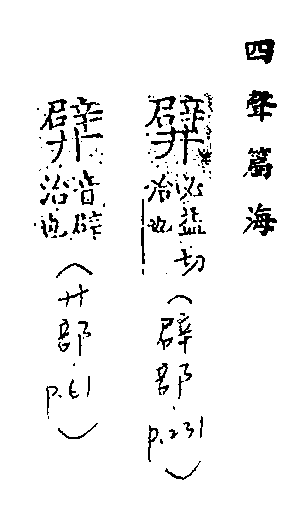 四聲篇海
䢃必益切治也(辟部.p.231)
䢃音辟治也(廾部.p.61)